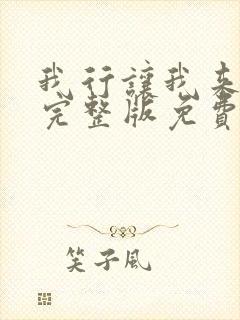 我行讓我來
完整版免費
笑子風